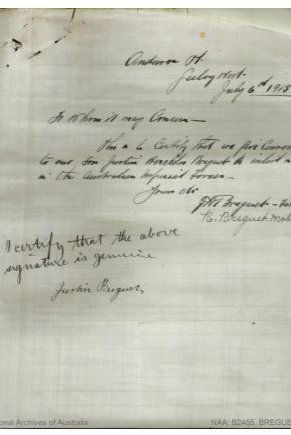 Anderson St.
Geelong West.
July 6th 1915
To Whom it may Concern—
This is to Certify that we give Consent
to our Son Justin Breguet to enlist
in the Australian Imperial Forces.
Yours etc
Breguet - Fa
R. Breguet, Mot
I certify that the above
signature is genuine
Justin Breguet
onal Archives of Australia
NAA: B2455, BREGUE